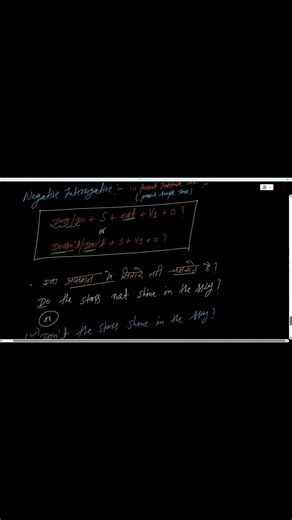 Negative Interrogative :- in present Indefinite Tense :-
(present simple Tense)
Does/Do + S + not + V1 + O ?
or
Doesn't/Don't + S + V1 + O ?
क्या आसमान में सितारे नहीं चमकते हैं?
Do the stars not shine in the sky?
or
Don't the stars shine in the sky?